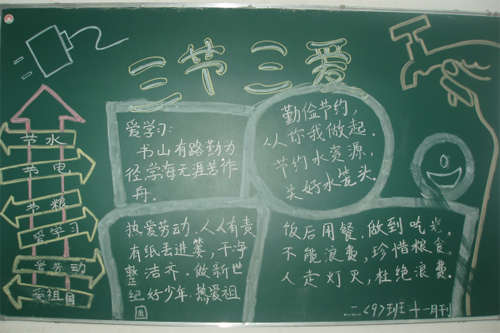 三节三爱
节水
节电
节粮
爱学习
爱劳动
爱祖国
爱学习:
书山有路勤为
径学海无涯苦作
舟.
勤俭节约,
从你我做起.
节约水资源
关好水笼头.
热爱劳动.人人有责
有纸丢进篓,干净
整洁齐.做新世
纪好少年.热爱祖
国
饭后用餐.做到吃光.
不能浪费,珍惜粮食.
人走灯灭,杜绝浪费.
二〈9〉班十一月刊